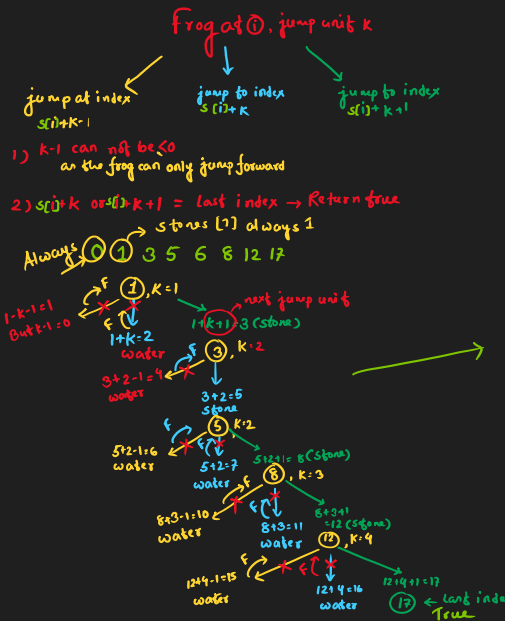 frog at i, jump unit K
jump at index
s[i]+K-1
jump to index
s[i]+K
jump to index
s[i]+K+1
1) K-1 can not be <0
as the frog can only jump forward
2) s[i]+K or s[i]+K+1 = last index → Return true
stones [1] always 1
Always 0 1 3 5 6 8 12 17
1, K=1
F
F
1-K-1=1
But K-1=0
1+K=2
water
next jump unit
1+K+1=3 (stone)
3, K=2
F
3+2-1=4
water
3+2=5
stone
5, K=2
F
F
5+2-1=6
water
5+2=7
water
5+2+1=8 (stone)
8, K=3
F
F
8+3-1=10
water
8+3=11
water
8+3+1
=12 (stone)
12, K=4
F
F
12+4-1=15
water
12+4=16
water
12+4+1=17
17 ← Last inde
True